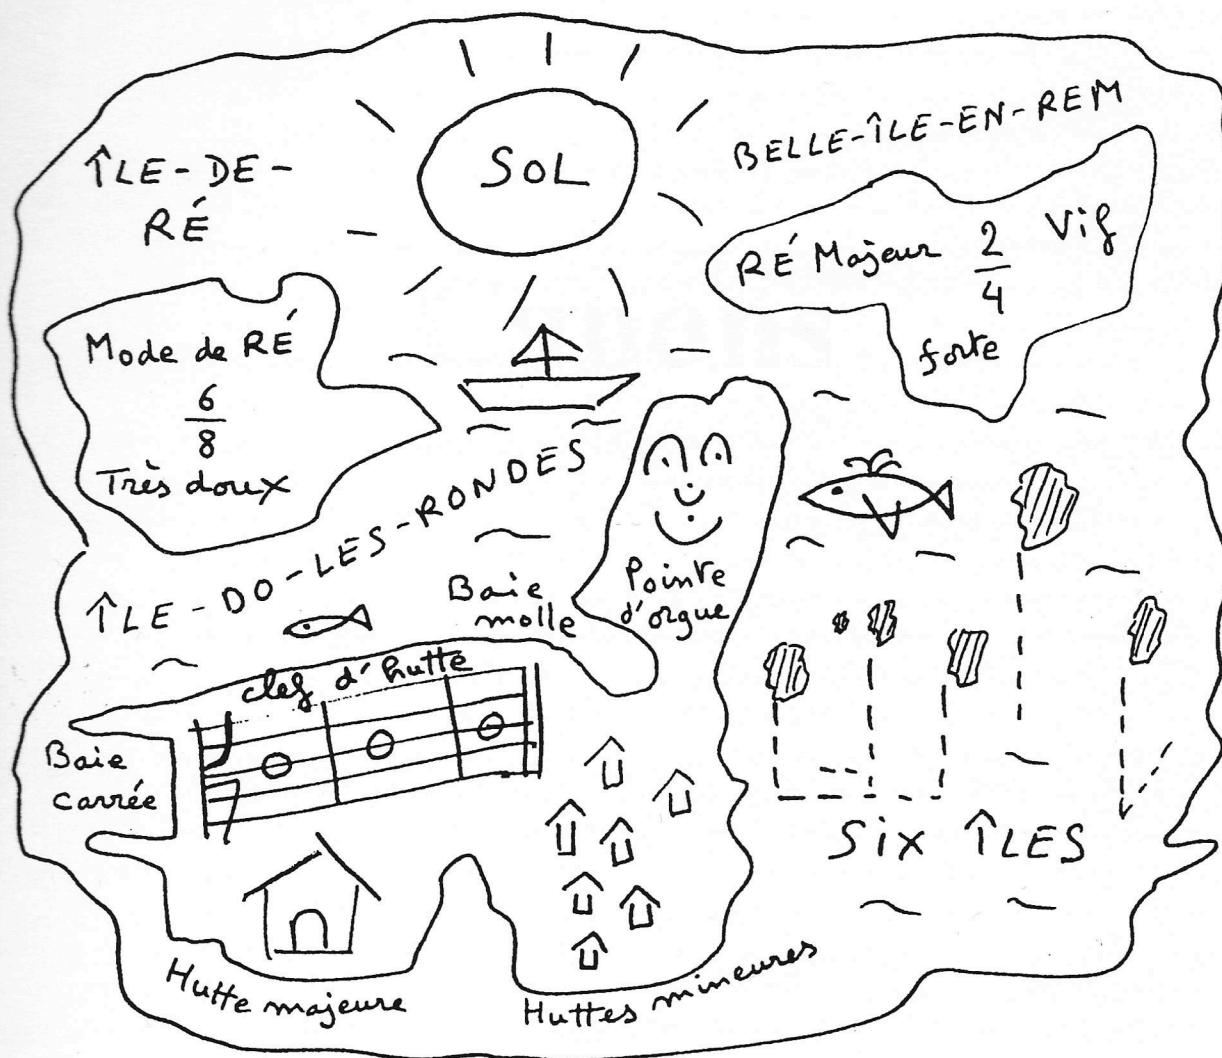 SOL
ÎLE-DE-
RÉ
BELLE-ÎLE-EN-REM
RÉ Majeur 2/4 Vif
forte
Mode de RÉ
6/8
Très doux
ÎLE-DO-LES-RONDES
Baie
molle
Pointe
d'orgue
clef d'hutte
Baie
carrée
SiX ÎLES
Hutte majeure
Huttes mineures